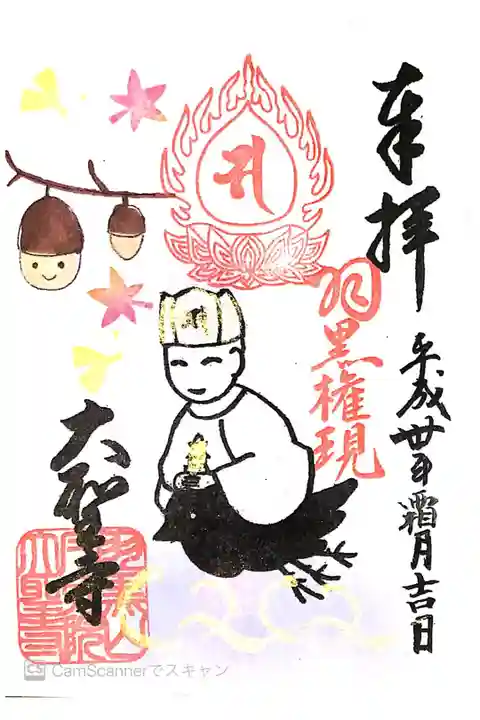 奉拝
平成卅年霜月吉日
羽黒権現
大聖寺
CS CamScannerでスキャン